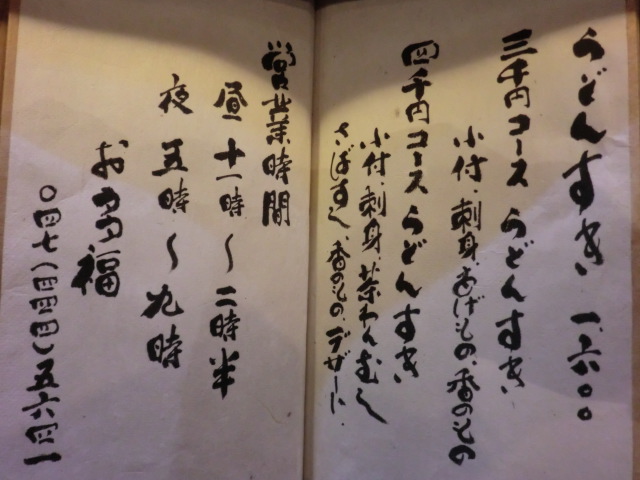 うどんすき 一、六〇〇
三千円コース うどんすき
小付、刺身、あげもの、香のもの
四千円コース うどんすき
小付、刺身、茶わんむし
さばずし、香のもの、デザート、
営業時間
昼 十一時〜二時半
夜 五時〜九時
お多福
〇四七(四四四)五六四一